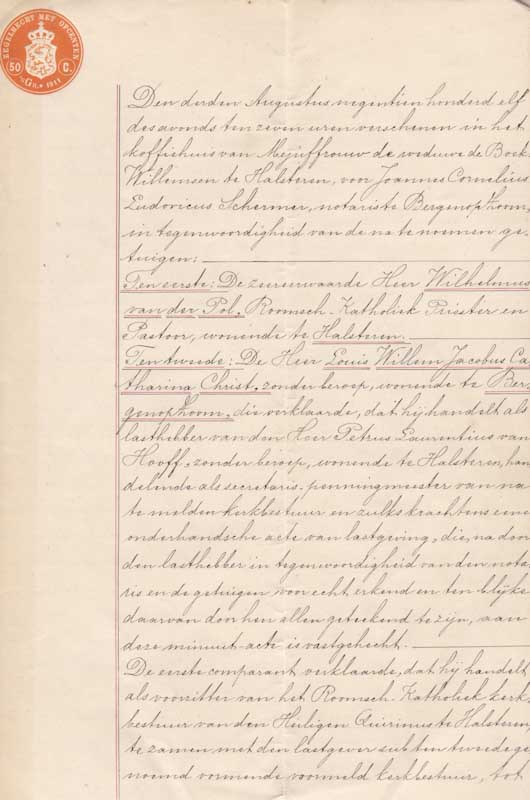 ZEGELRECHT MET OPCENTEN
50 C.
1911
Den derden Augustus negentien honderd elf
des avonds ten zeven uren verschenen in het
koffiehuis van Mejuffrouw de weduwe de Bock
Willemsen te Halsteren, voor Joannes Cornelius
Ludovicus Schermer, notaris te Bergen op Zoom,
in tegenwoordigheid van de na te noemen ge-
tuigen:
Ten eerste: De zeereerwaarde Heer Wilhelmus
van der Pol, Roomsch-Katholiek Priester en
Pastoor, wonende te Halsteren.
Ten tweede: De Heer Louis Willem Jacobus Ca-
tharina Christ, zonder beroep, wonende te Ber-
gen op Zoom, die verklaarde, dat hij handelt als
lasthebber van den Heer Petrus Laurentius van
Hooff, zonder beroep, wonende te Halsteren, han
delende als secretaris-penningmeester van na
te melden kerkbestuur en zulks krachtens eene
onderhandsche acte van lastgeving, die, na door
den lasthebber in tegenwoordigheid van den nota-
ris en de getuigen voor echt erkend en ten blijke
daarvan door hen allen geteekend te zijn, aan
deze minuut acte is vastgehecht.
De eerste comparant verklaarde, dat hij handelt
als voorzitter van het Roomsch-Katholiek kerk-
bestuur van den Heiligen Quirinus te Halsteren,
te zamen met den lastgever sub ten tweede ge
noemd vormende voormeld kerkbestuur, tot